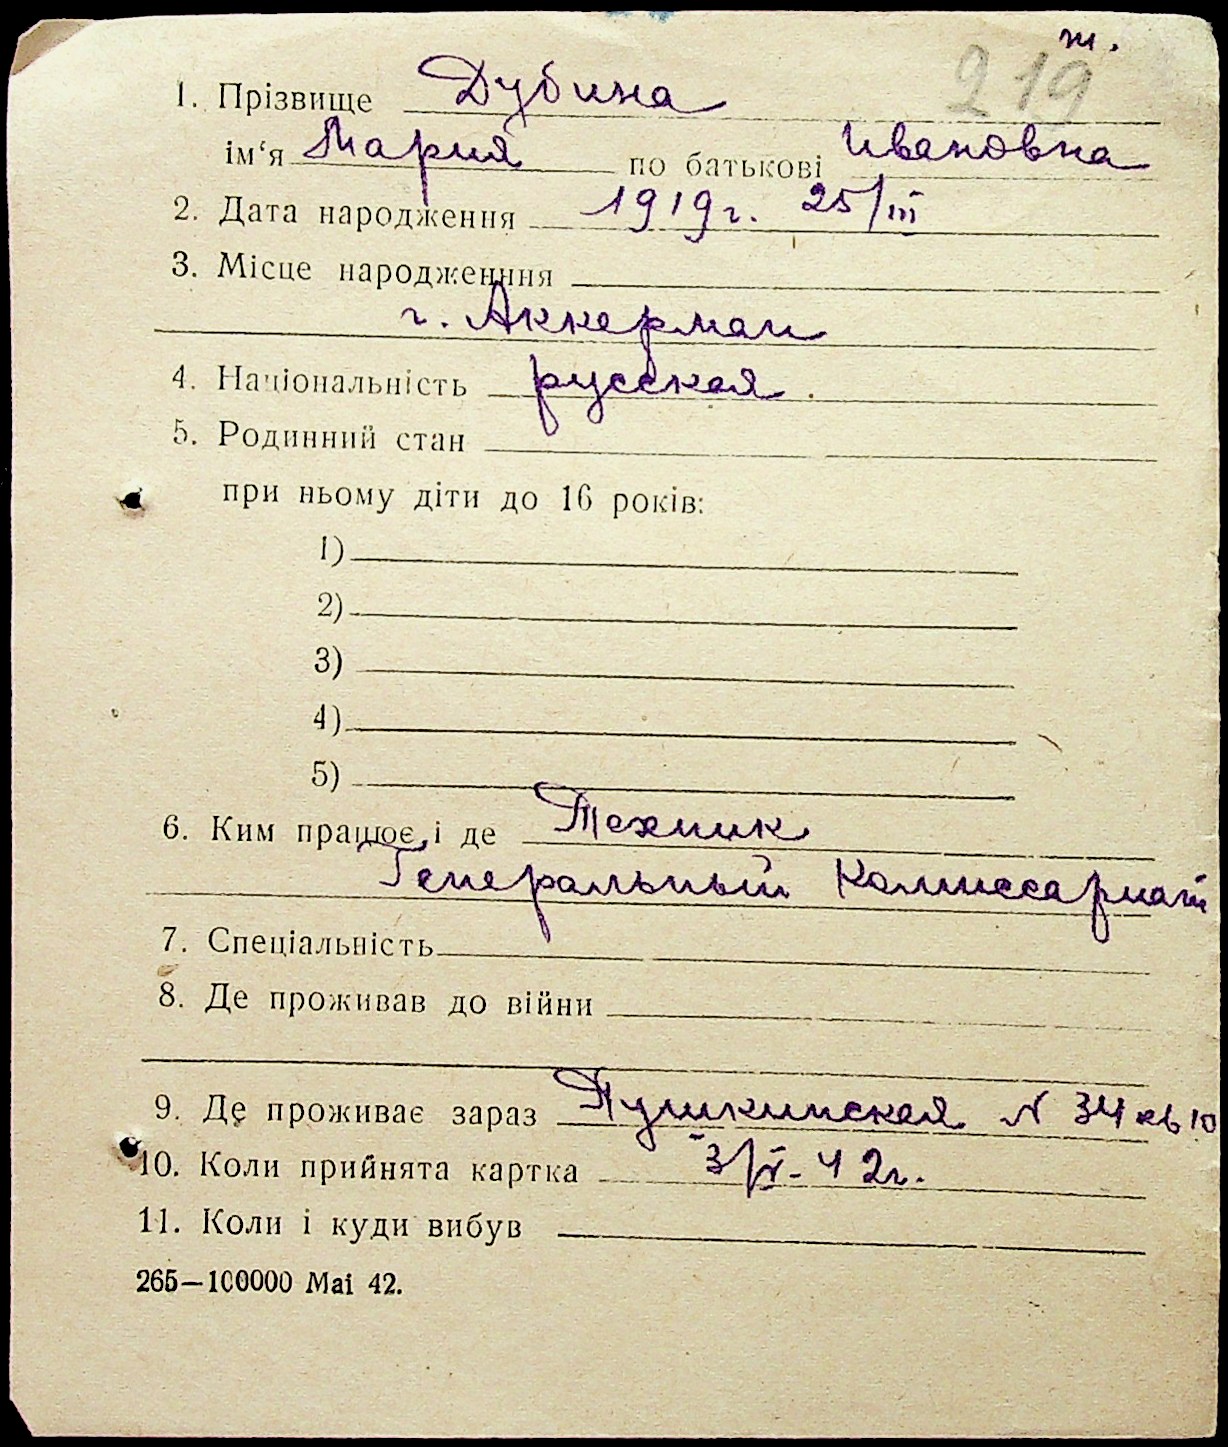 т.
219
1. Прізвище Дубина
ім‘я Мария по батькові Ивановна
2. Дата народження 1919г. 25/III
3. Місце народженння
г. Аккерман
4. Національність русская
5. Родинний стан
при ньому діти до 16 років:
1)
2)
3)
4)
5)
6. Ким працює і де Техник
Генеральный Комиссариат
7. Спеціальність
8. Де проживав до війни
9. Де проживає зараз Пушкинская N 34 кв 10
10. Коли прийнята картка 3/V-42г.
11. Коли і куди вибув
265—100000 Mai 42.